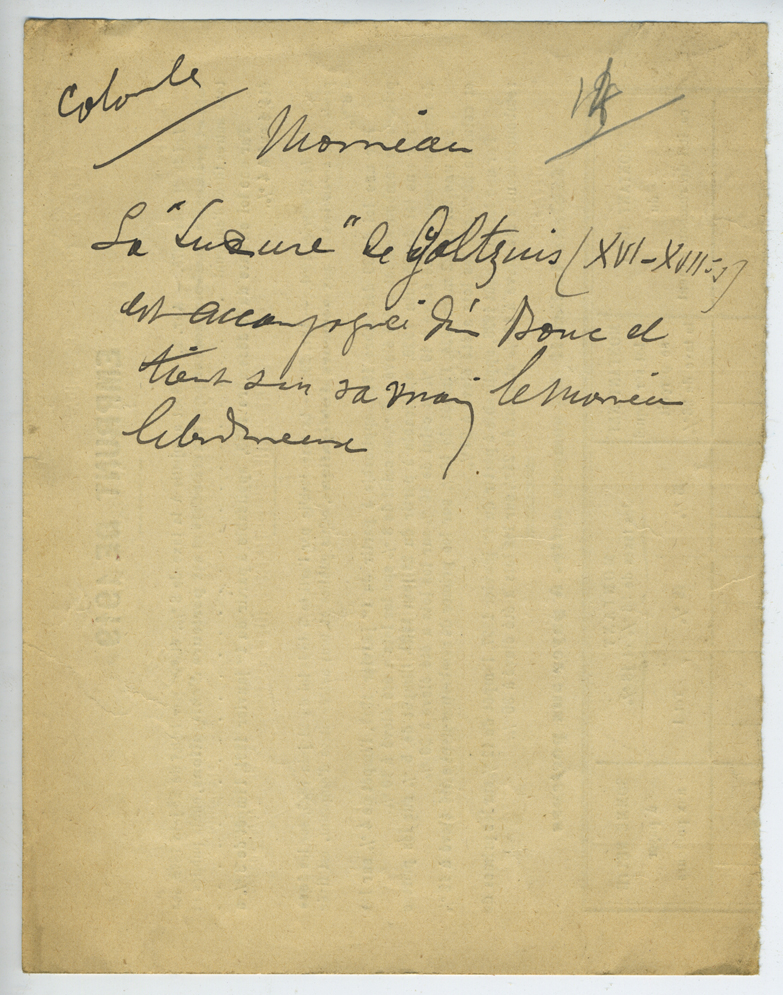 Colombe
Moineau
La "Luxure" de Goltzius (XVI-XVII
est accompagnée d'un Bouc et
tient sur sa main, le Moineau
libidineux